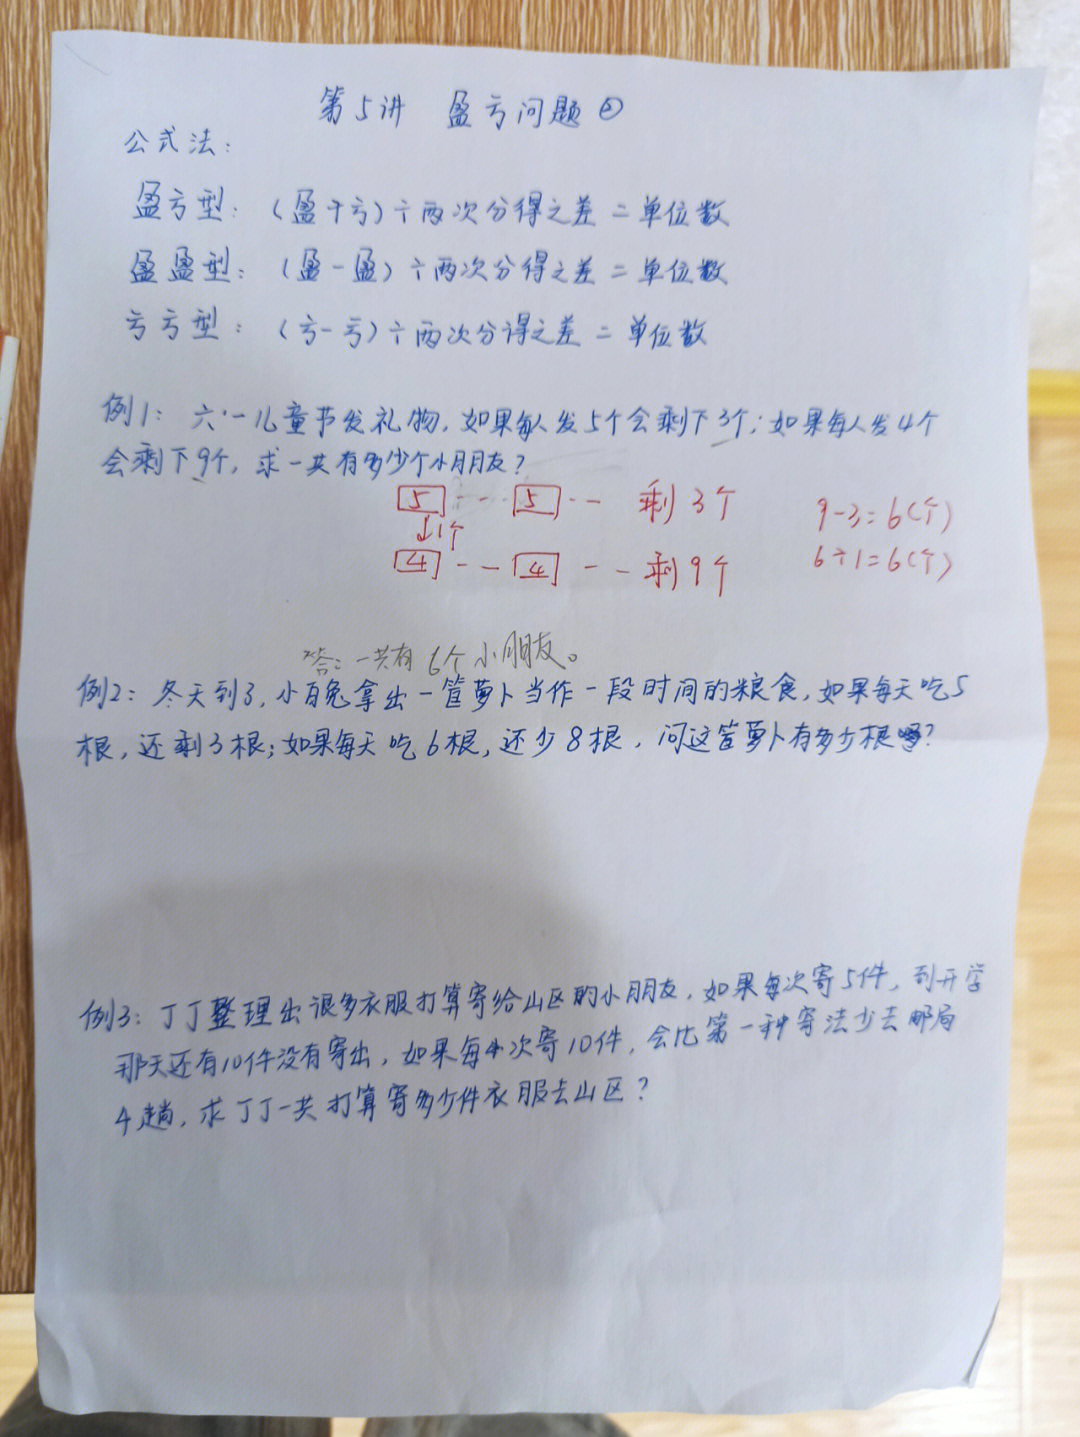 第5讲 盈亏问题②
公式法:
盈亏型:(盈+亏)÷两次分得之差=单位数
盈盈型:(盈-盈)÷两次分得之差=单位数
亏亏型:(亏-亏)÷两次分得之差=单位数
例1:六·一儿童节发礼物,如果每人发5个会剩下3个;如果每人发4个
会剩下9个,求一共有多少个小朋友?
5 -- 5 -- 剩3个 9-3=6(个)
↓1个
4 -- 4 -- 剩9个 6÷1=6(个)
答:一共有6个小朋友。
例2:冬天到了,小白兔拿出一筐萝卜当作一段时间的粮食,如果每天吃5
根,还剩3根;如果每天吃6根,还少8根,问这筐萝卜有多少根?
例3:丁丁整理出很多衣服打算寄给山区的小朋友,如果每次寄5件,到开学
那天还有10件没有寄出,如果每次寄10件,会比第一种寄法少去邮局
4趟,求丁丁一共打算寄多少件衣服去山区?